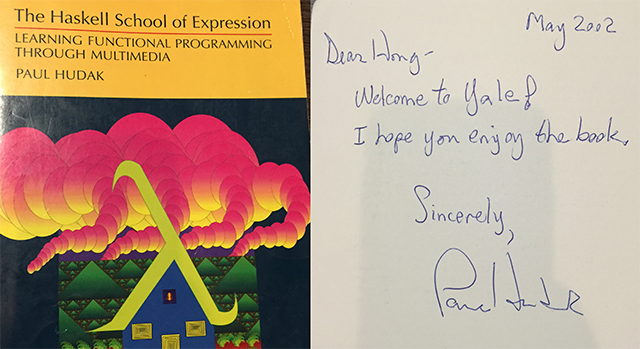 The Haskell School of Expression
LEARNING FUNCTIONAL PROGRAMMING
THROUGH MULTIMEDIA
PAUL HUDAK
May 2002
Dear Hong-
Welcome to Yale &
I hope you enjoy the book.
Sincerely,
Paul Hudak